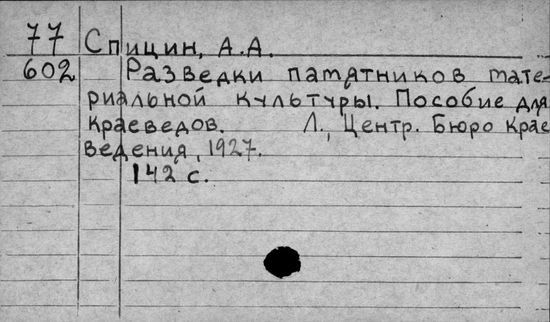 77 Спицин, А.А.
602 Разведки памятников мате-
риальной культуры. Пособие для
краеведов. Л., Центр. Бюро крае
ведения, 1927.
142 с.